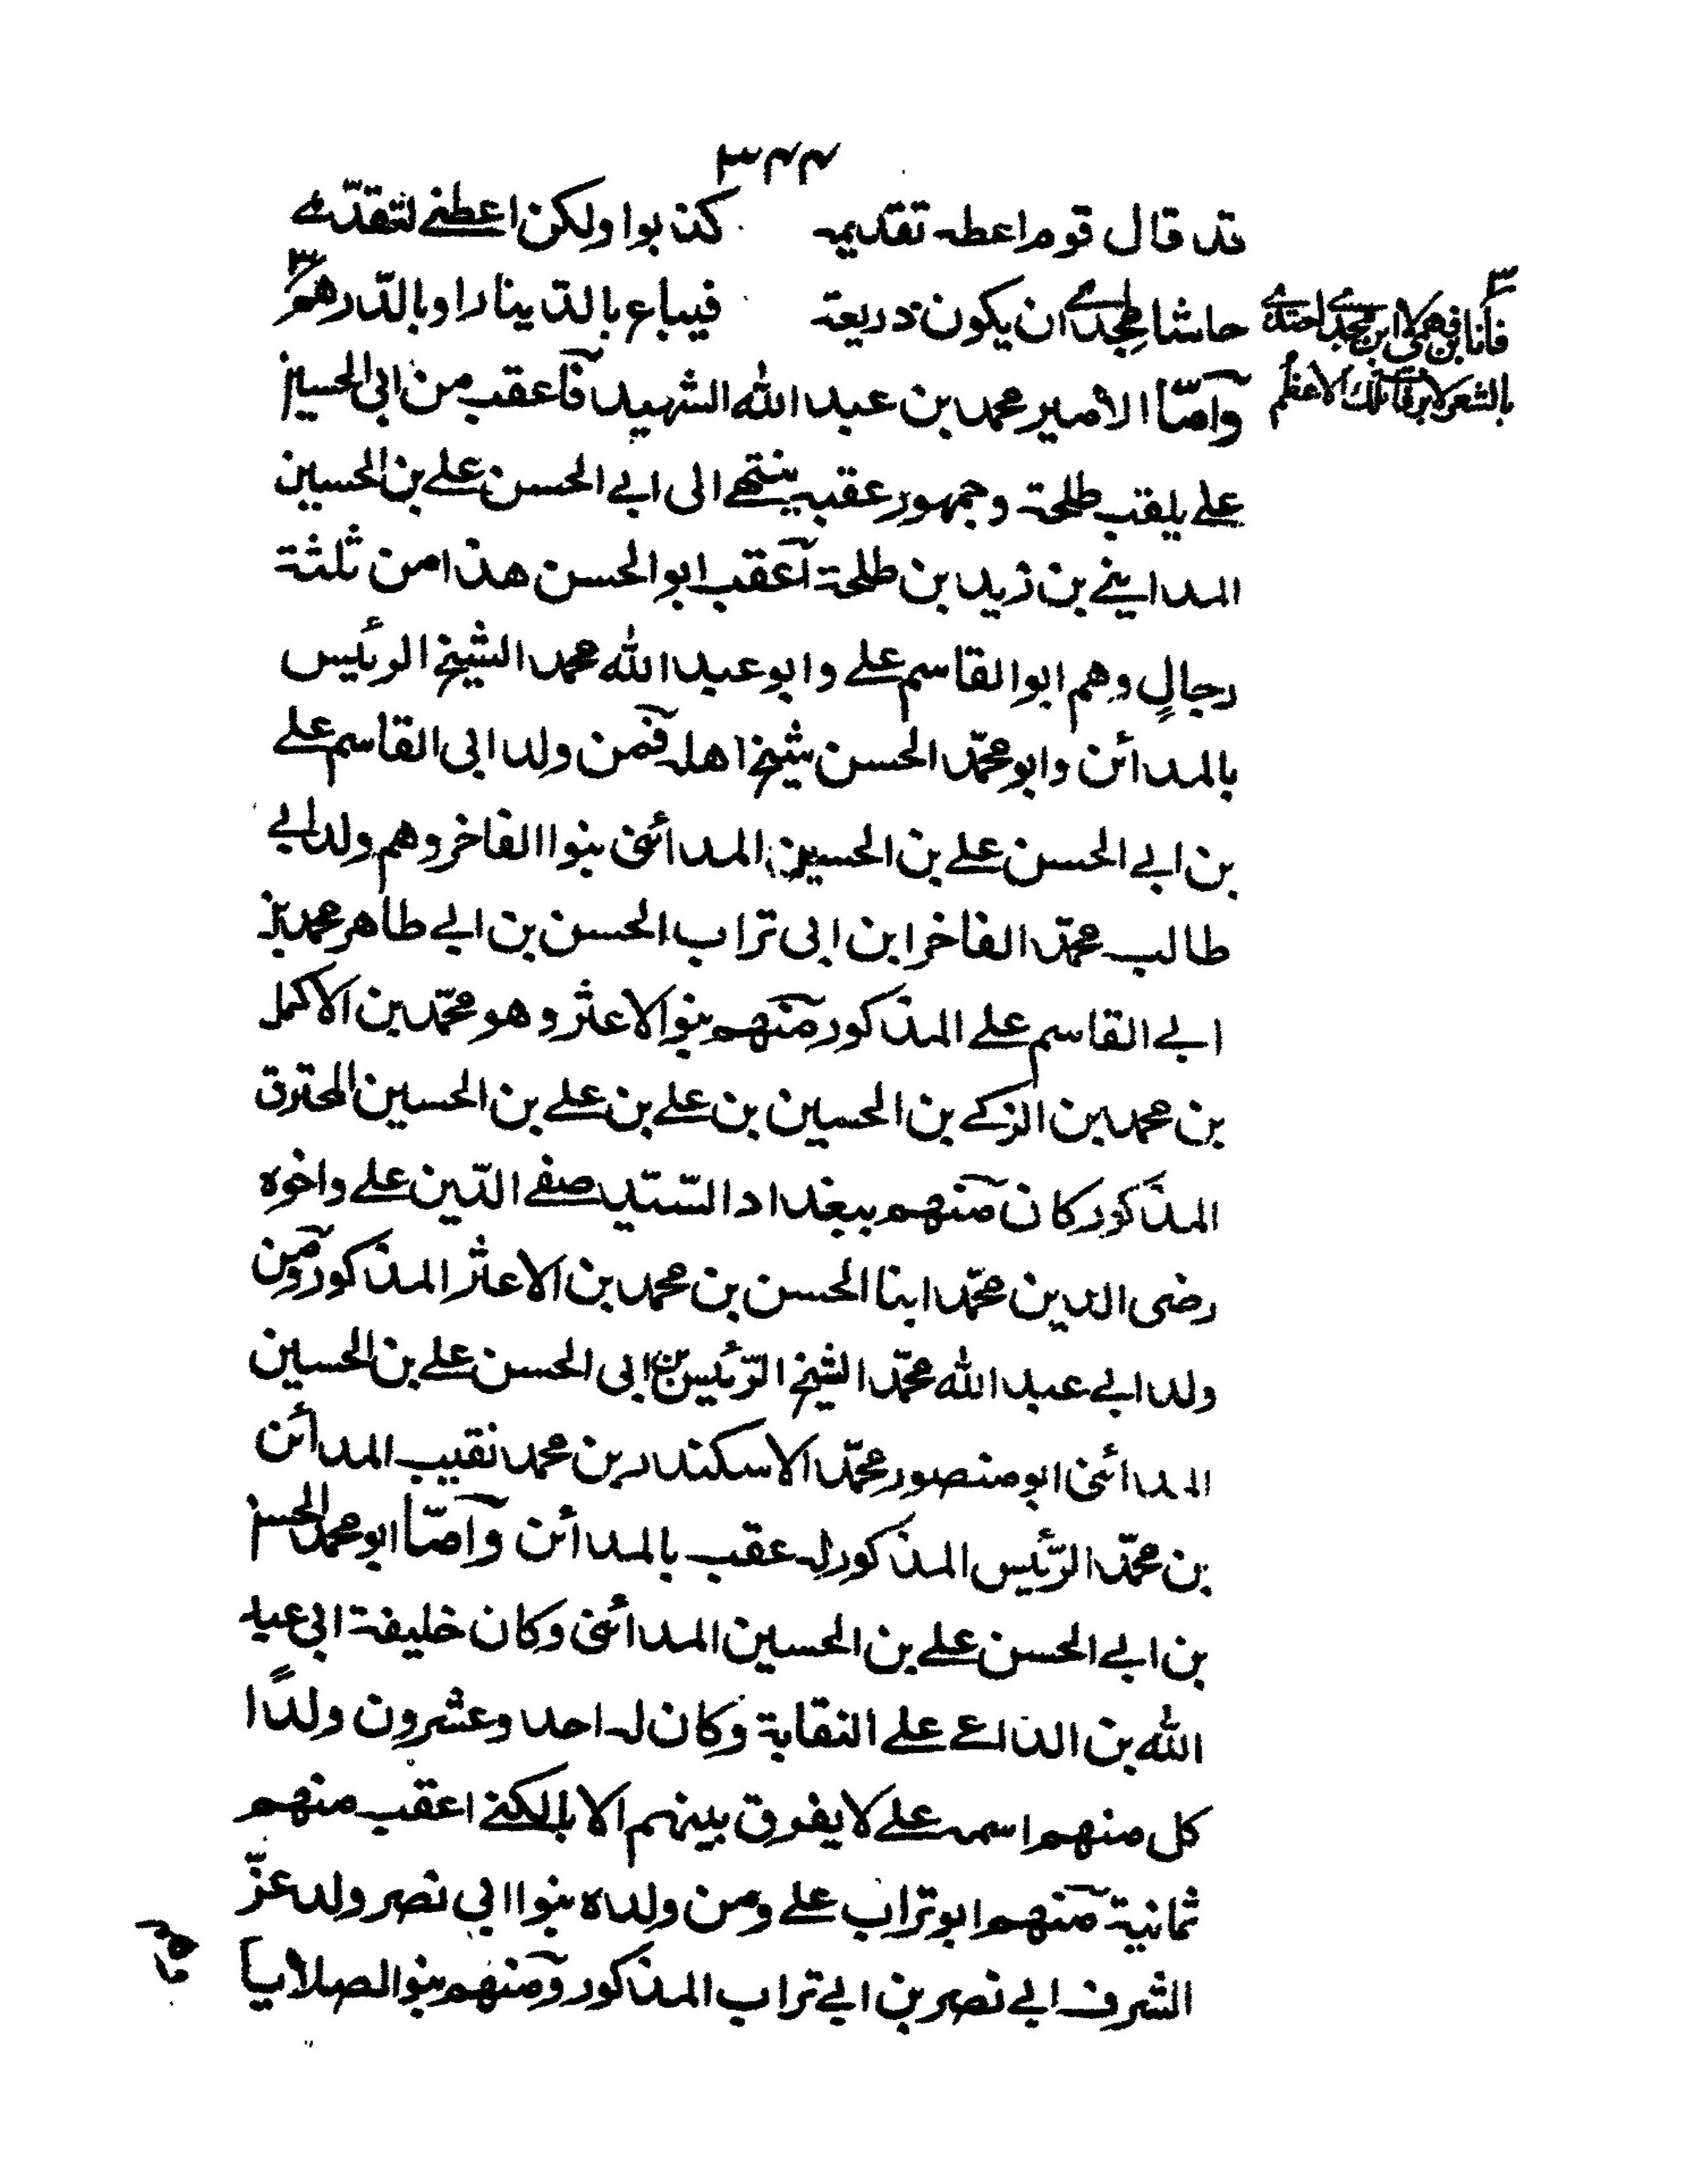 ٣٤٤
قد قال قوم اعطه تقديمه كذبوا ولكن اعطني لتقدّمي
حاشا لمجدي ان يكون ذريعة فيباع بالدّينار او بالدّرهم
فانا ابن فهمي لا ابن مجدي احتدي
بالشعر لا برفات تلك الاعظم
وامّا الامير محمد بن عبد الله الشهيد فاعقب من ابي الحسين
علي يلقب طلحة وجمهور عقبه ينتهي الى ابي الحسن علي بن الحسين
المدايني بن زيد بن طلحة اعقب ابو الحسن هذا من ثلثة
رجالٍ وهم ابو القاسم علي وابو عبد الله محمد الشيخ الرئيس
بالمدائن وابو محمّد الحسن شيخ اهله فمن ولد ابي القاسم علي
بن ابي الحسن علي بن الحسين المدائنى بنوا الفاخر وهم ولد ابي
طالب محمّد الفاخر ابن ابى تراب الحسن بن ابي طاهر محمد بن
ابي القاسم علي المذكور منهم بنو الاعثر وهو محمّد بن الاكمل
بن محمد بن الزكي بن الحسين بن علي بن علي بن الحسين المحترق
المذكور كان منهم ببغداد السّيّد صفي الدّين علي واخوه
رضى الدين محمّد ابنا الحسن بن محمد بن الاعثر المذكور ومن
ولد ابي عبد الله محمّد الشيخ الرّئيس بن ابى الحسن علي بن الحسين
المدائنى ابو منصور محمّد الاسكندر بن محمد نقيب المدائن
بن محمّد الرّئيس المذكور له عقب بالمدائن وامّا ابو محمد الحسن
بن ابي الحسن علي بن الحسين المدائنى وكان خليفة ابى عبد
الله بن الداعي علي النقابة وكان له احد وعشرون ولدًا
كل منهم اسمه علي لا يفرق بينهم الا بالكني اعقب منهم
ثمانية منهم ابو تراب علي ومن ولده بنوا ابي نصر ولد عزّ
الشرف ابي نصر بن ابي تراب المذكور ومنهم بنو الصلايا